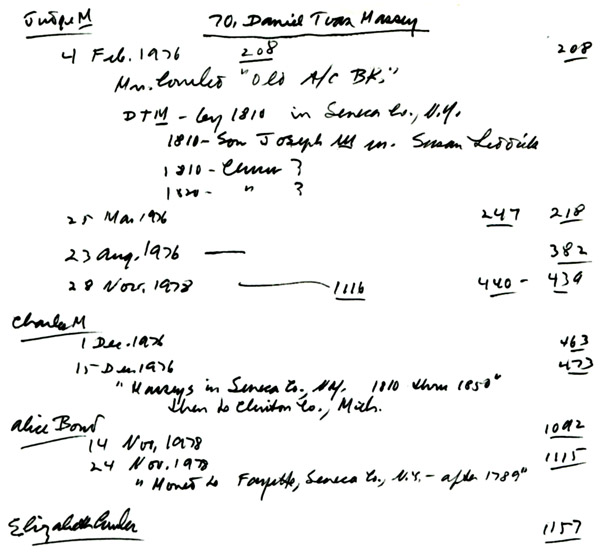 Judge M 70, Daniel Tvan Massey
4 Feb. 1976 208 208
Mrs. "Old A/C BK."
DTM - by 1810 in Seneca Co., N.Y.
1810 - Son Joseph M m. Susan
1810 - Census ?
1820 - " ?
25 Mar 1976 247 218
23 Aug. 1976 — 382
28 Nov. 1978 — 1116 440 - 439
Charles M
1 Dec. 1976 463
15 Dec 1976 473
"Masseys in Seneca Co., N.Y. 1810 thru 1850"
then to Clinton Co., Mich.
Alice Bond
14 Nov, 1978 1092
24 Nov. 1978 1115
"Moved to Fayette, Seneca Co., N.Y. - after 1789"
Elizabeth 1157